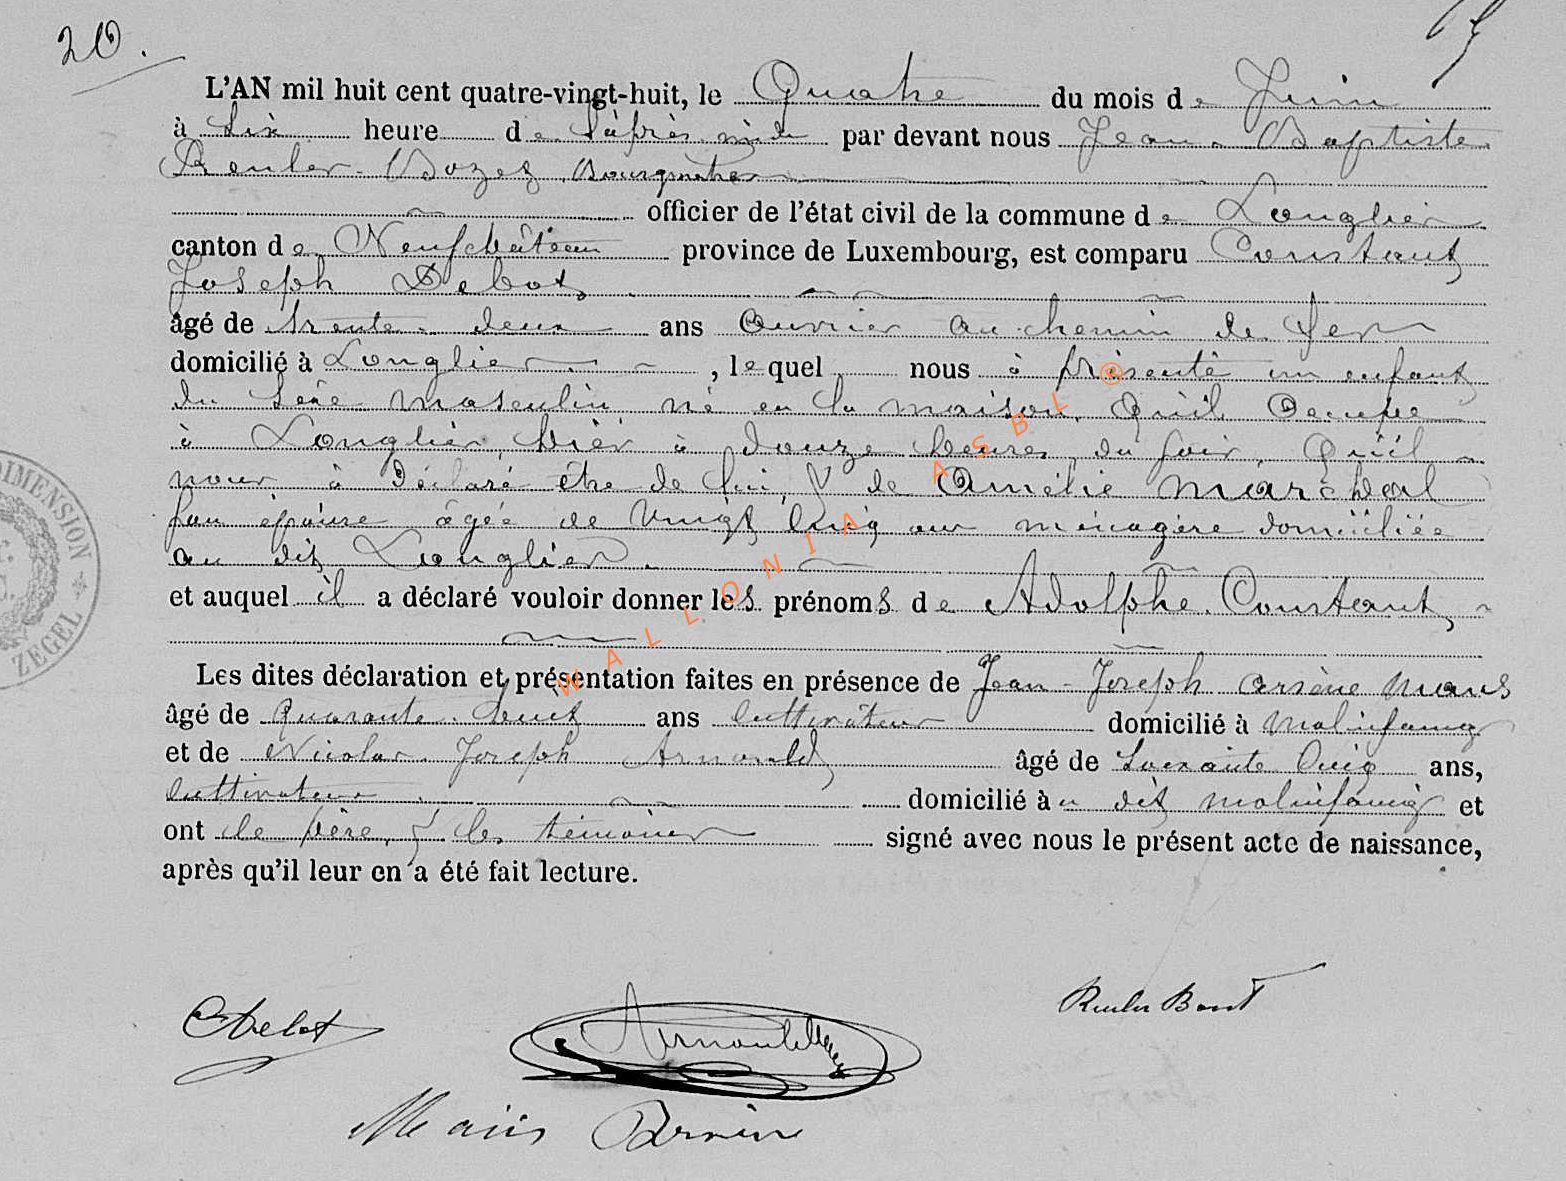 20.
L'AN mil huit cent quatre-vingt-huit, le Quatre du mois de Juin
à Six heure de L'après midi par devant nous Jean Baptiste
Reuler-Bozet Bourgmestre
officier de l'état civil de la commune de Longlier
canton de Neufchâteau province de Luxembourg, est comparu Constant
Joseph Debot
âgé de trente deux ans Ouvrier au chemin de fer
domicilié à Longlier, lequel nous à présenté un enfant
du sexe masculin né en la maison Qu'il Occupe
à Longlier, hièr à douze heures du soir, Qu'il
nous à déclaré être de lui, & de Amélie Maréchal
son épouse âgée de vingt cinq ans ménagère domiciliée
au dit Longlier.
et auquel il a déclaré vouloir donner les prénoms de Adolphe Constant
Les dites déclaration et présentation faites en présence de Jean-Joseph Arsène
âgé de Quarante huit ans cultivateur domicilié à Molinfaing
et de Nicolas Joseph Arnould âgé de Soixante Cinq ans,
cultivateur domicilié au dit molinfaing et
ont le père, & les témoins signé avec nous le présent acte de naissance,
après qu'il leur en a été fait lecture.
Debot
Arnould
Reuler Bozet
DIMENSION
ZEGEL
WALLONIA ASBL @